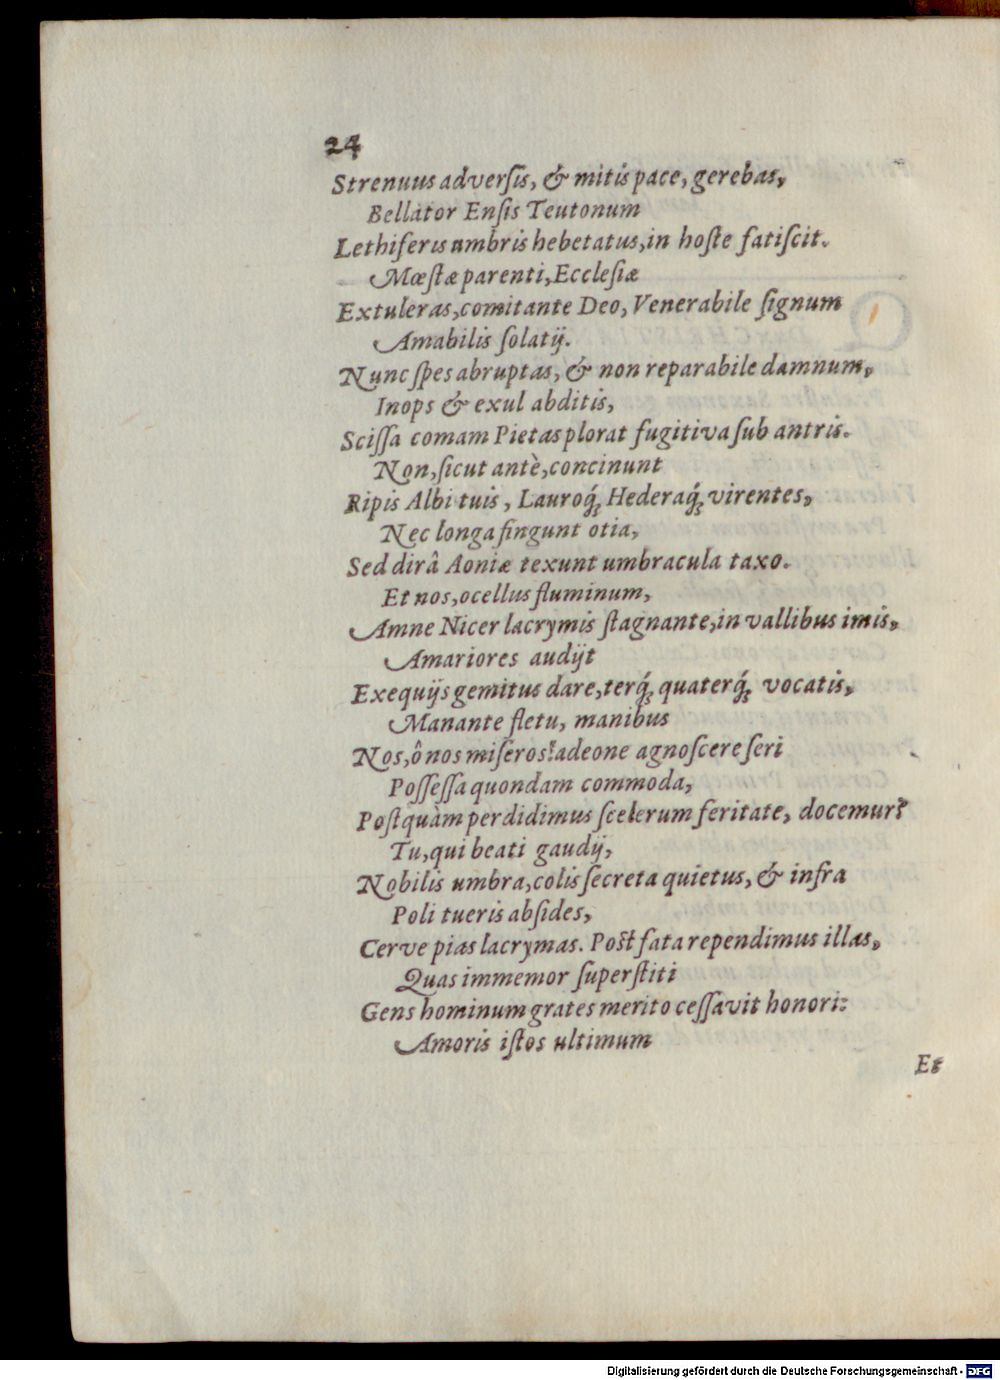 24
Strenuus adverſis, & mitis pace, gerebas,
Bellator Enſis Teutonum
Lethiferis umbris hebetatus, in hoſte fatiſcit.
Mœſtæ parenti, Eccleſiæ
Extuleras, comitante Deo, Venerabile ſignum
Amabilis ſolatij.
Nunc ſpes abruptas, & non reparabile damnum,
Inops & exul abditis,
Sciſſa comam Pietas plorat fugitiva ſub antris.
Non, ſicut antè, concinunt
Ripis Albi tuis, Lauroq́; Hederaq́; virentes,
Nec longa fingunt otia,
Sed dirâ Aoniæ texunt umbracula taxo.
Et nos, ocellus fluminum,
Amne Nicer lacrymis ſtagnante, in vallibus imis,
Amariores audijt
Exequijs gemitus dare, terq́; quaterq́; vocatis,
Manante fletu, manibus
Nos, ô nos miſeros! adeone agnoſcere ſeri
Poſſeſſa quondam commoda,
Poſtquàm perdidimus ſcelerum feritate, docemur?
Tu, qui beati gaudij,
Nobilis umbra, colis ſecreta quietus, & infra
Poli tueris abſides,
Cerve pias lacrymas. Poſt fata rependimus illas,
Quas immemor ſuperſtiti
Gens hominum grates merito ceſſavit honori:
Amoris iſtos ultimum
Et
Digitalisierung gefördert durch die Deutsche Forschungsgemeinschaft - DFG